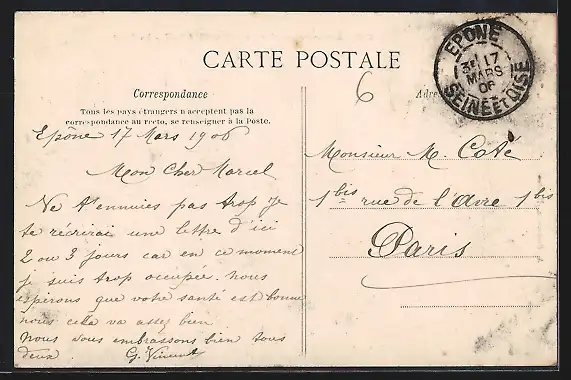 CARTE POSTALE
Correspondance
Tous les pays étrangers n'acceptent pas la
correspondance au recto, se renseigner à la Poste.
Epône 17 Mars 1906
Mon Cher Marcel
Ne t'ennuies pas trop je
te récrirai une lettre d'ici
2 ou 3 jours car en ce moment
je suis trop occupée. nous
espérons que votre santé est bonne
nous cela va assez bien
Nous vous embrassons bien tous
deux. G. Vincent
6
Adre
EPONE
3E 17
MARS
06
SEINE ET OISE
Monsieur M. Coté
1 bis rue de l'Avre 1 bis
Paris